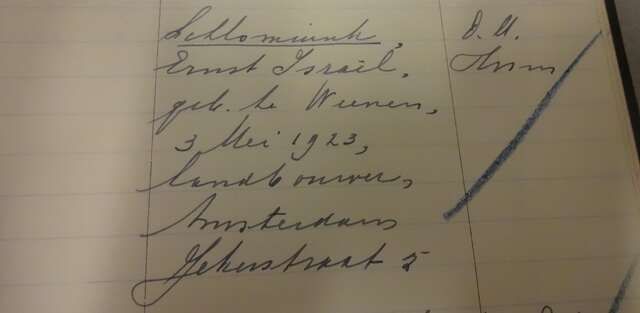 Schlomiunk,
Ernst Israël,
geb. te Weenen,
3 Mei 1923,
landbouwer,
Amsterdam
Jekerstraat 5
D. U.